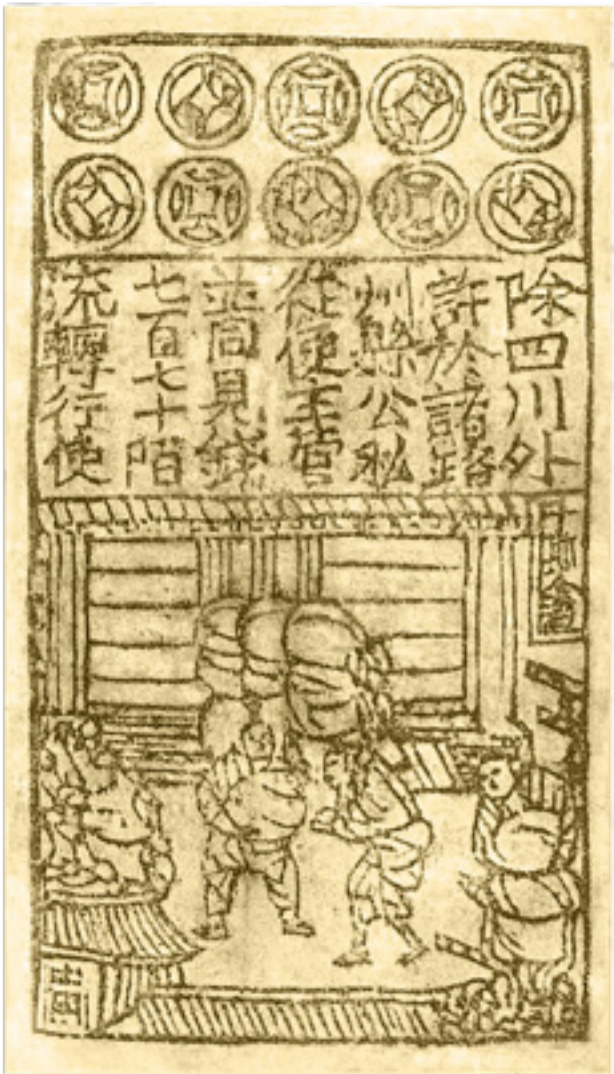 除四川外
許於諸路
州縣公私
從便主管
並同見錢
七百七十階
流轉行使
千斯倉